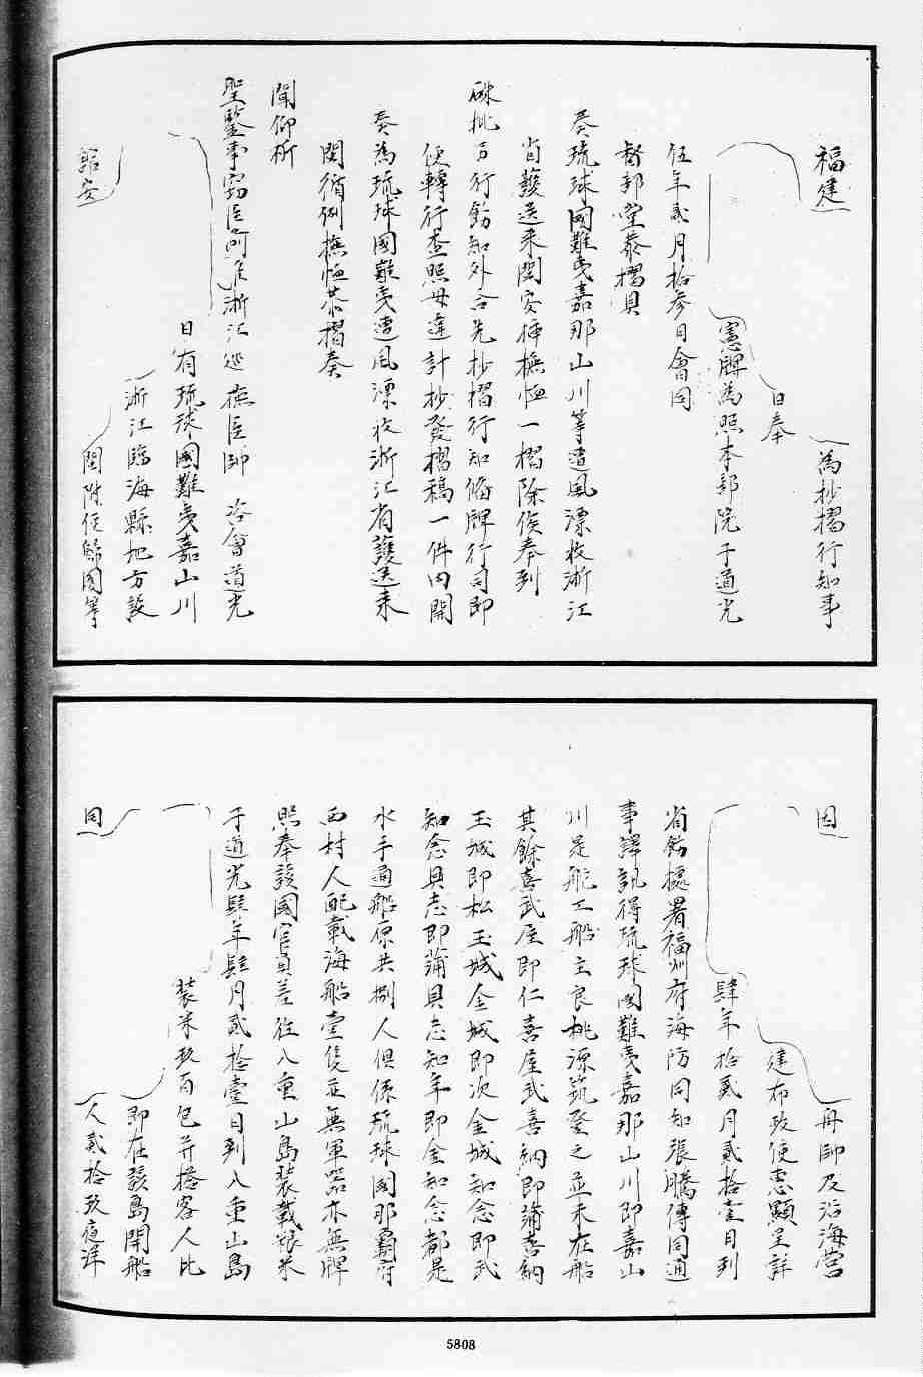 福建
為抄摺行知事
日奉
憲牌為照本部院于道光
伍年貳月拾參日會同
督部堂泰摺具
奏琉球國難夷嘉那山川等遭風漂收浙江
省護送來閩安揷撫恤一摺除俟奉到
硃批另行飭知外合先抄摺行知備牌行司即
便轉行查照毋違計抄發摺稿一件內開
奏為琉球國難夷遭風漂收浙江省護送來
閩循例撫恤恭摺奏
聞仰祈
聖鑒事竊臣則准浙江巡撫臣帥咨會道光
日有琉球國難夷嘉山川
浙江臨海縣地方設
館安
閩附伴歸國等
因
舟師及沿海營
建布政使惠顯呈詳
肆年拾貳月貳拾壹日到
省飭據署福州府海防同知張騰傳同通
事譯訊得琉球國難夷嘉那山川即嘉山
川是舵工船主良桃源筑登之並未在船
其餘喜武屋即仁喜屋武喜納即蒲喜納
玉城即松玉城金城即次金城知念即武
知念具志即蒲具志知年即金知念都是
水手通船原共捌人俱係琉球國那霸府
西村人配載海船壹隻並無軍器亦無牌
照奉該國官員差往八重山島裝載糧米
于道光肆年肆月貳拾壹日到八重山島
裝米玖百包并搭客人比
即在該島開船
同
人貳拾玖夜洋